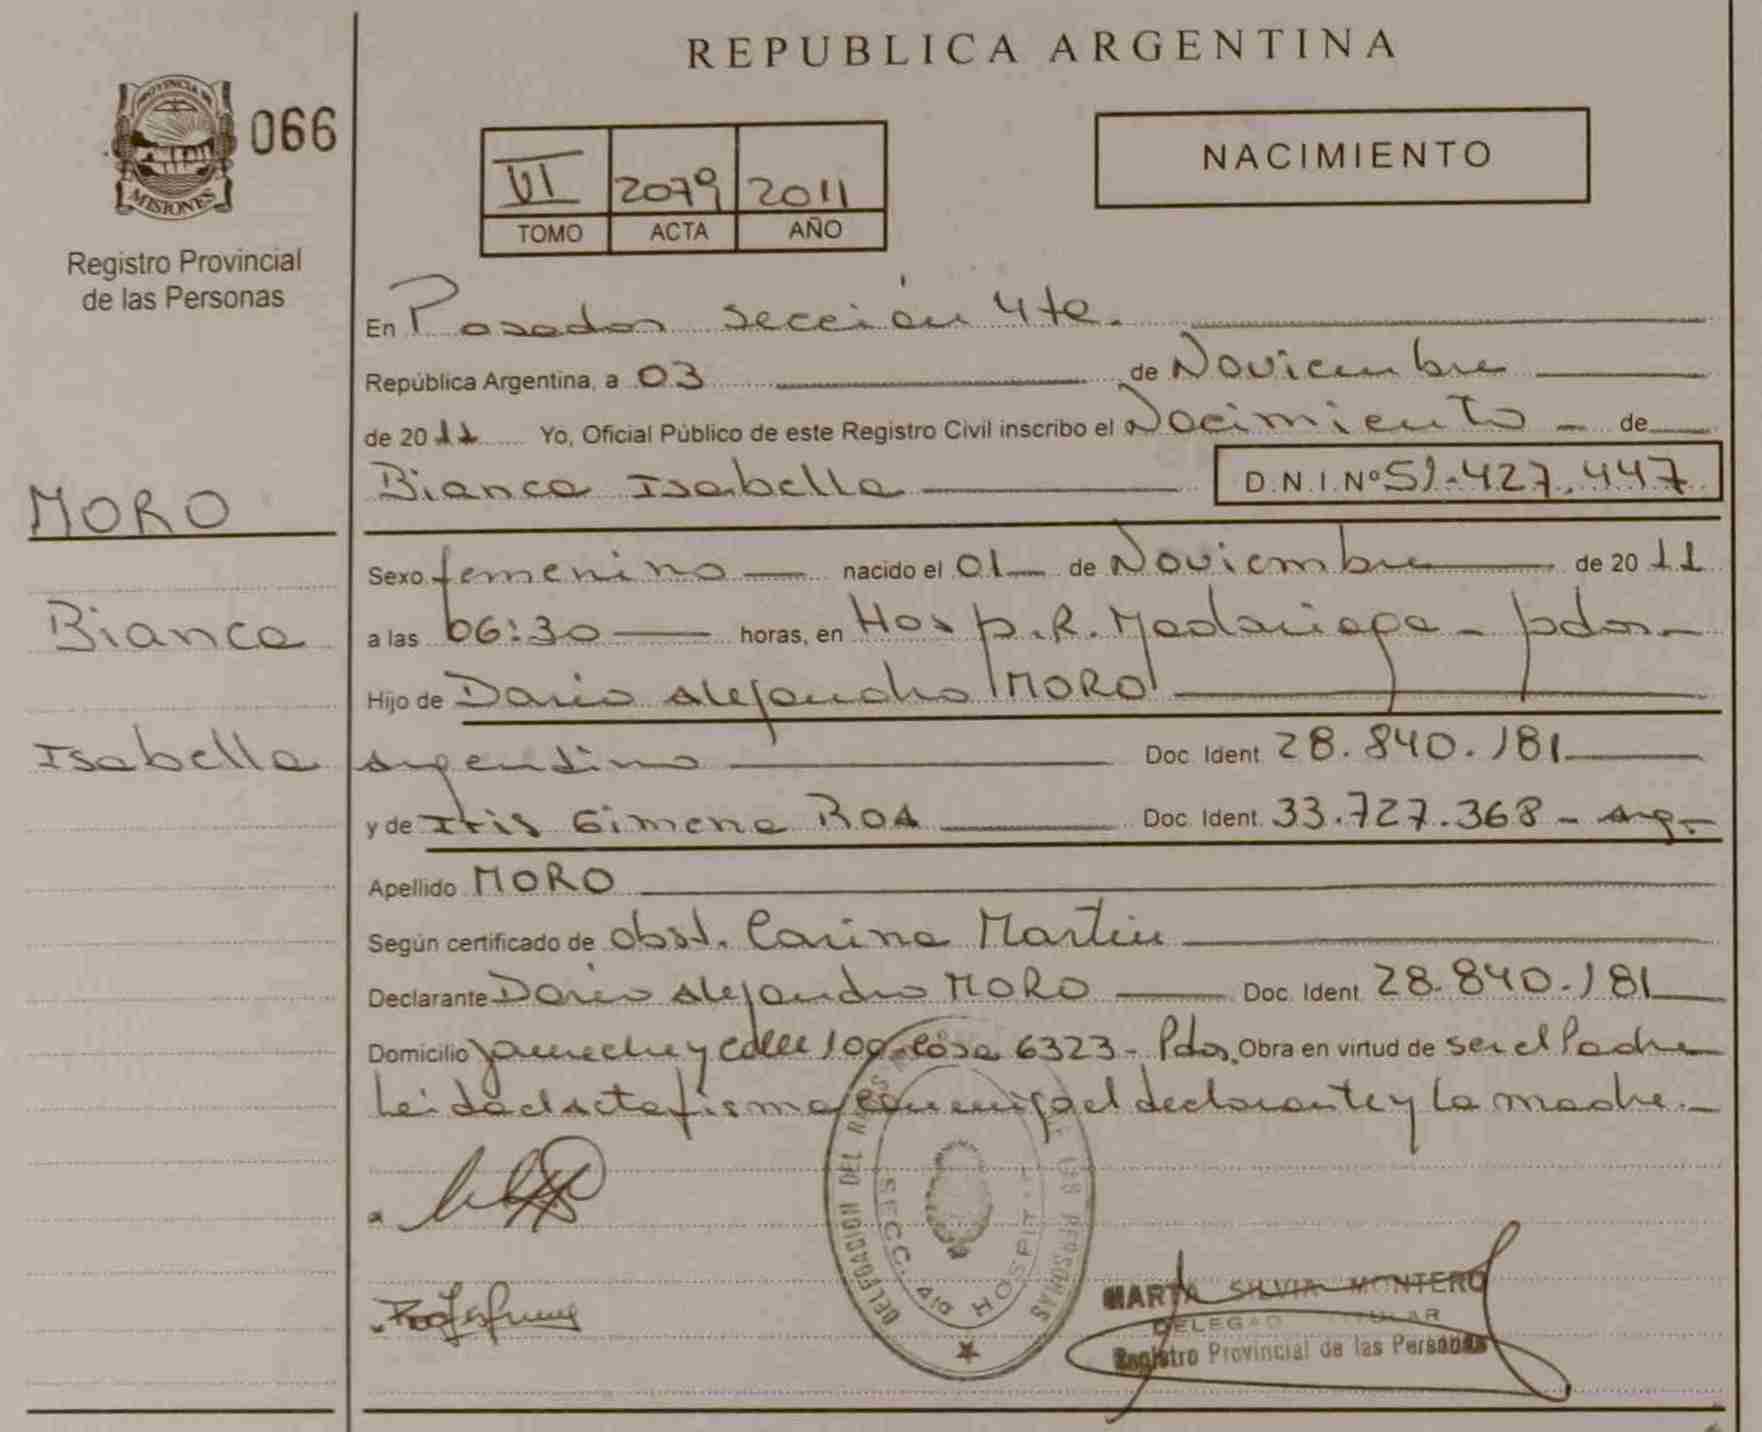 REPUBLICA ARGENTINA
PROVINCIA DE
MISIONES
066
Registro Provincial
de las Personas
VI 2079 2011
TOMO ACTA AÑO
NACIMIENTO
En Posadas sección 4ta.
República Argentina, a 03 de Noviembre
de 2011 Yo, Oficial Público de este Registro Civil inscribo el Nacimiento - de
Bianca Isabella D.N.I.Nº 51.427.447
MORO
Bianca
Isabella
Sexo femenino nacido el 01 de Noviembre de 2011
a las 06:30 horas, en Hosp. R. Madariaga - pdas -
Hijo de Dario Alejandro MORO
Argentino Doc. Ident. 28.840.181
y de Iris Gimena ROA Doc. Ident. 33.727.368 - Arg.-
Apellido MORO
Según certificado de obst. Carina Martin
Declarante Dario Alejandro MORO Doc. Ident. 28.840.181
Domicilio y calle 109 casa 6323 - Pdas. Obra en virtud de ser el Padre
Leida el Acta firma conmigo el declarante y la madre.-
DELEGACION DEL DE LAS PERSONAS
SECC. 4ta HOSPITAL
MARTA SILVIA MONTERO
DELEGADO TITULAR
Registro Provincial de las Personas